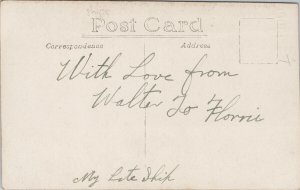 Post Card
Correspondence
Address
With Love from
Walter To Florrie
My Late Ship